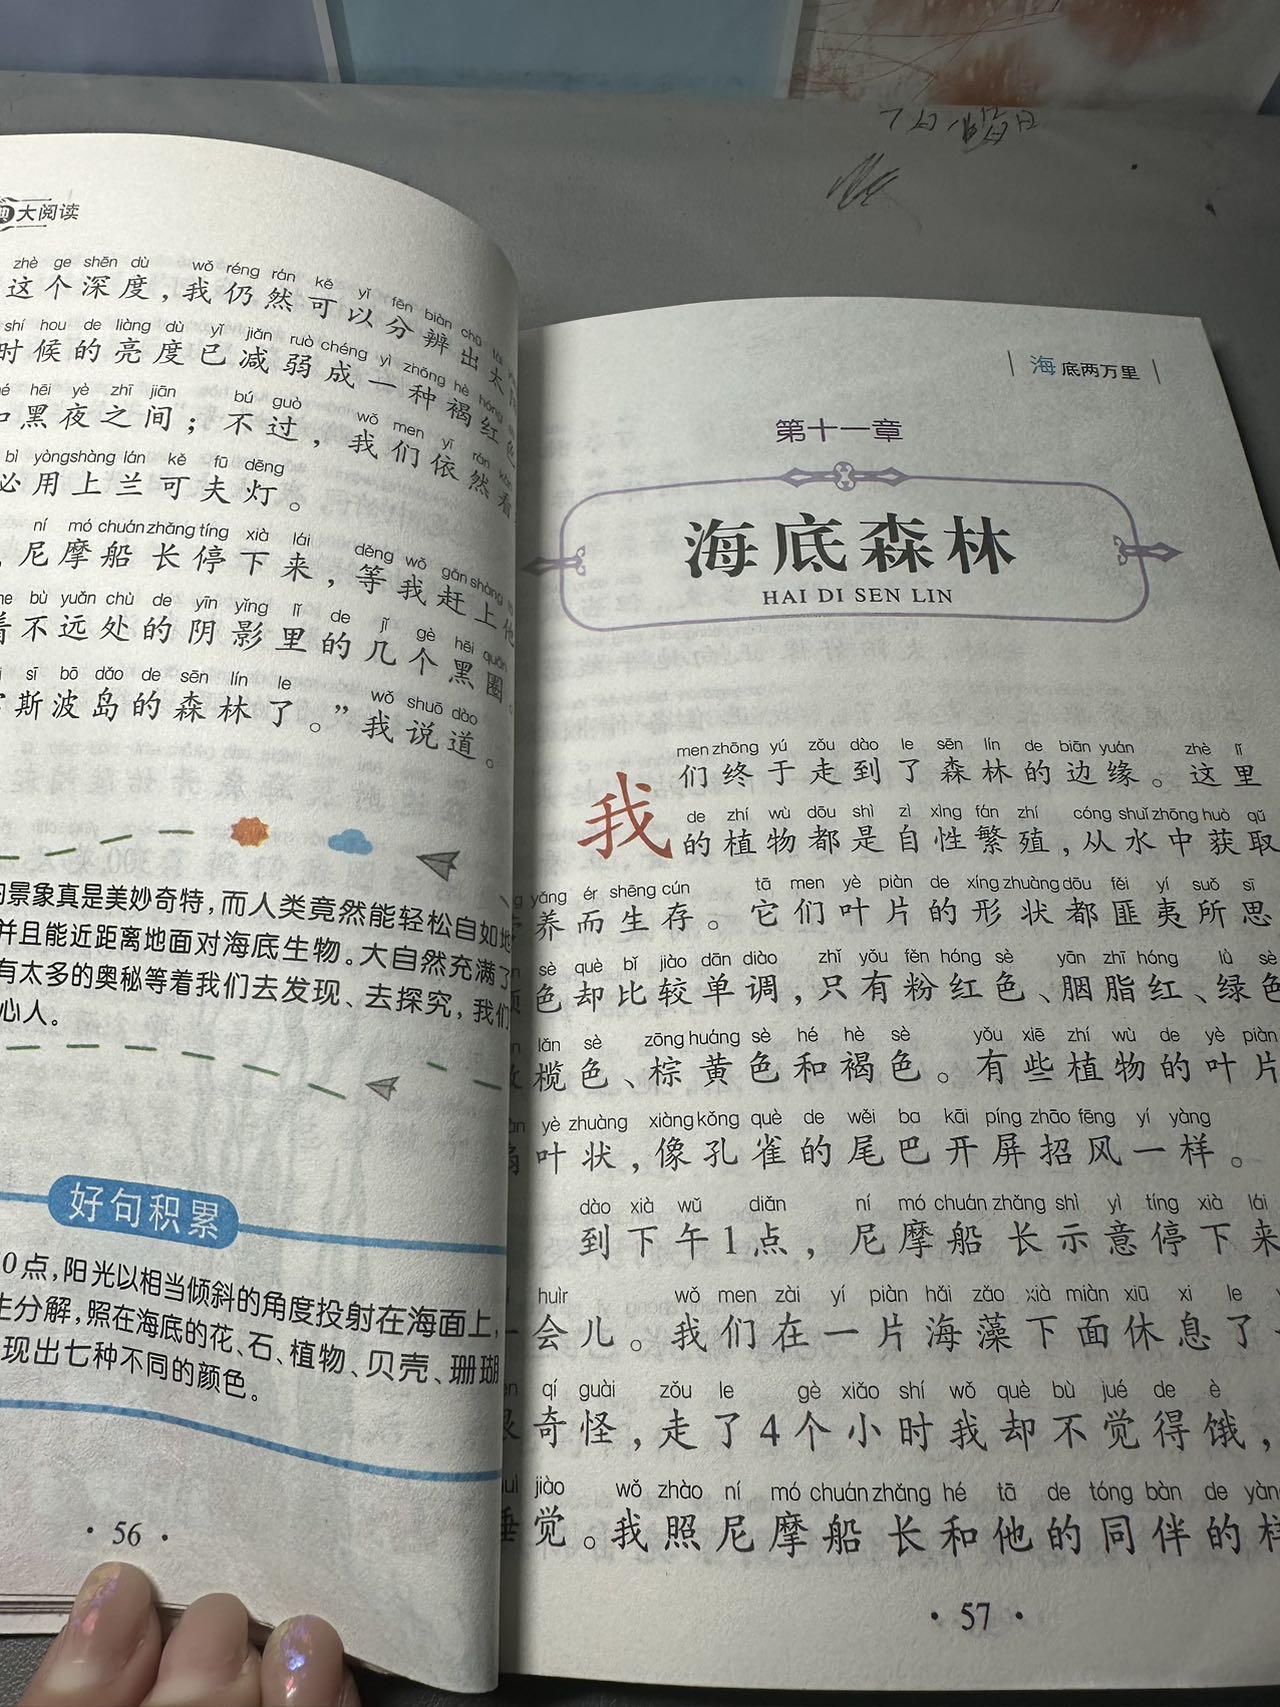 大阅读
zhè ge shēn dù wǒ réng rán kě yǐ fēn biàn chū
这个深度，我仍然可以分辨出太
shí hou de liàng dù yǐ jiǎn ruò chéng yì zhǒng hè hóng
时候的亮度已减弱成一种褐红色
hēi yè zhī jiān bú guò wǒ men yī rán
和黑夜之间；不过，我们依然看
bì yòng shàng lán kě fū dēng
必用上兰可夫灯。
ní mó chuán zhǎng tíng xià lái děng wǒ gǎn shàng
尼摩船长停下来，等我赶上他
bù yuǎn chù de yīn yǐng lǐ de jǐ gè hēi quān
着不远处的阴影里的几个黑圈。
sī bō dǎo de sēn lín le wǒ shuō dào
斯波岛的森林了。”我说道。
的景象真是美妙奇特，而人类竟然能轻松自如地
并且能近距离地面对海底生物。大自然充满了
有太多的奥秘等着我们去发现、去探究，我们
心人。
好句积累
0点，阳光以相当倾斜的角度投射在海面上，
生分解，照在海底的花、石、植物、贝壳、珊瑚
现出七种不同的颜色。
· 56 ·
海底两万里
第十一章
海底森林
HAI DI SEN LIN
men zhōng yú zǒu dào le sēn lín de biān yuán zhè lǐ
我们终于走到了森林的边缘。这里
de zhí wù dōu shì zì xìng fán zhí cóng shuǐ zhōng huò qǔ
的植物都是自性繁殖，从水中获取
yǎng ér shēng cún tā men yè piàn de xíng zhuàng dōu fěi yí suǒ sī
养而生存。它们叶片的形状都匪夷所思
sè què bǐ jiào dān diào zhǐ yǒu fěn hóng sè yān zhī hóng lǜ sè
色却比较单调，只有粉红色、胭脂红、绿色
lǎn sè zōng huáng sè hé hè sè yǒu xiē zhí wù de yè piàn
榄色、棕黄色和褐色。有些植物的叶片
yè zhuàng xiàng kǒng què de wěi ba kāi píng zhāo fēng yí yàng
叶状，像孔雀的尾巴开屏招风一样。
dào xià wǔ diǎn ní mó chuán zhǎng shì yì tíng xià lái
到下午1点，尼摩船长示意停下来
huìr wǒ men zài yí piàn hǎi zǎo xià miàn xiū xi le
一会儿。我们在一片海藻下面休息了
qí guài zǒu le gè xiǎo shí wǒ què bù jué de è
很奇怪，走了4个小时我却不觉得饿，
jiào wǒ zhào ní mó chuán zhǎng hé tā de tóng bàn de
睡觉。我照尼摩船长和他的同伴的样
· 57 ·